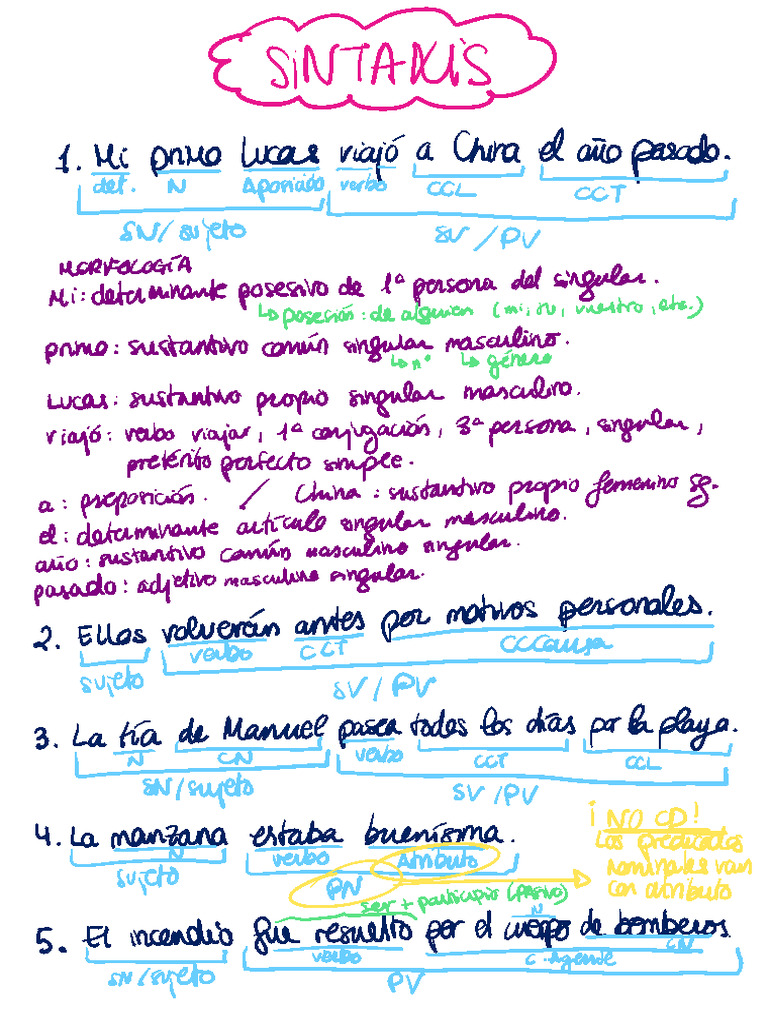 SINTAXIS
1. Mi primo Lucas viajó a China el año pasado.
det. N Aposición verbo CCL CCT
SN/sujeto SV/PV
MORFOLOGÍA
Mi: determinante posesivo de 1ª persona del singular.
↳ posesión: de alguien (mi, su, vuestro, etc.)
primo: sustantivo común singular masculino.
↳ nº ↳ género
Lucas: sustantivo propio singular masculino.
viajó: verbo viajar, 1ª conjugación, 3ª persona, singular,
pretérito perfecto simple.
a: preposición. / China: sustantivo propio femenino sg.
el: determinante artículo singular masculino.
año: sustantivo común masculino singular.
pasado: adjetivo masculino singular.
2. Ellos volverán antes por motivos personales.
verbo CCT CCCausa
sujeto SV/PV
3. La tía de Manuel pasea todos los días por la playa.
N CN verbo CCT CCL
SN/sujeto SV/PV
4. La manzana estaba buenísima.
N verbo Atributo
sujeto PN
¡NO CD!
Los predicados
nominales van
con atributo
ser + participio (pasivo)
5. El incendio fue resuelto por el cuerpo de bomberos.
N CN
verbo C. Agente
SN/sujeto PV